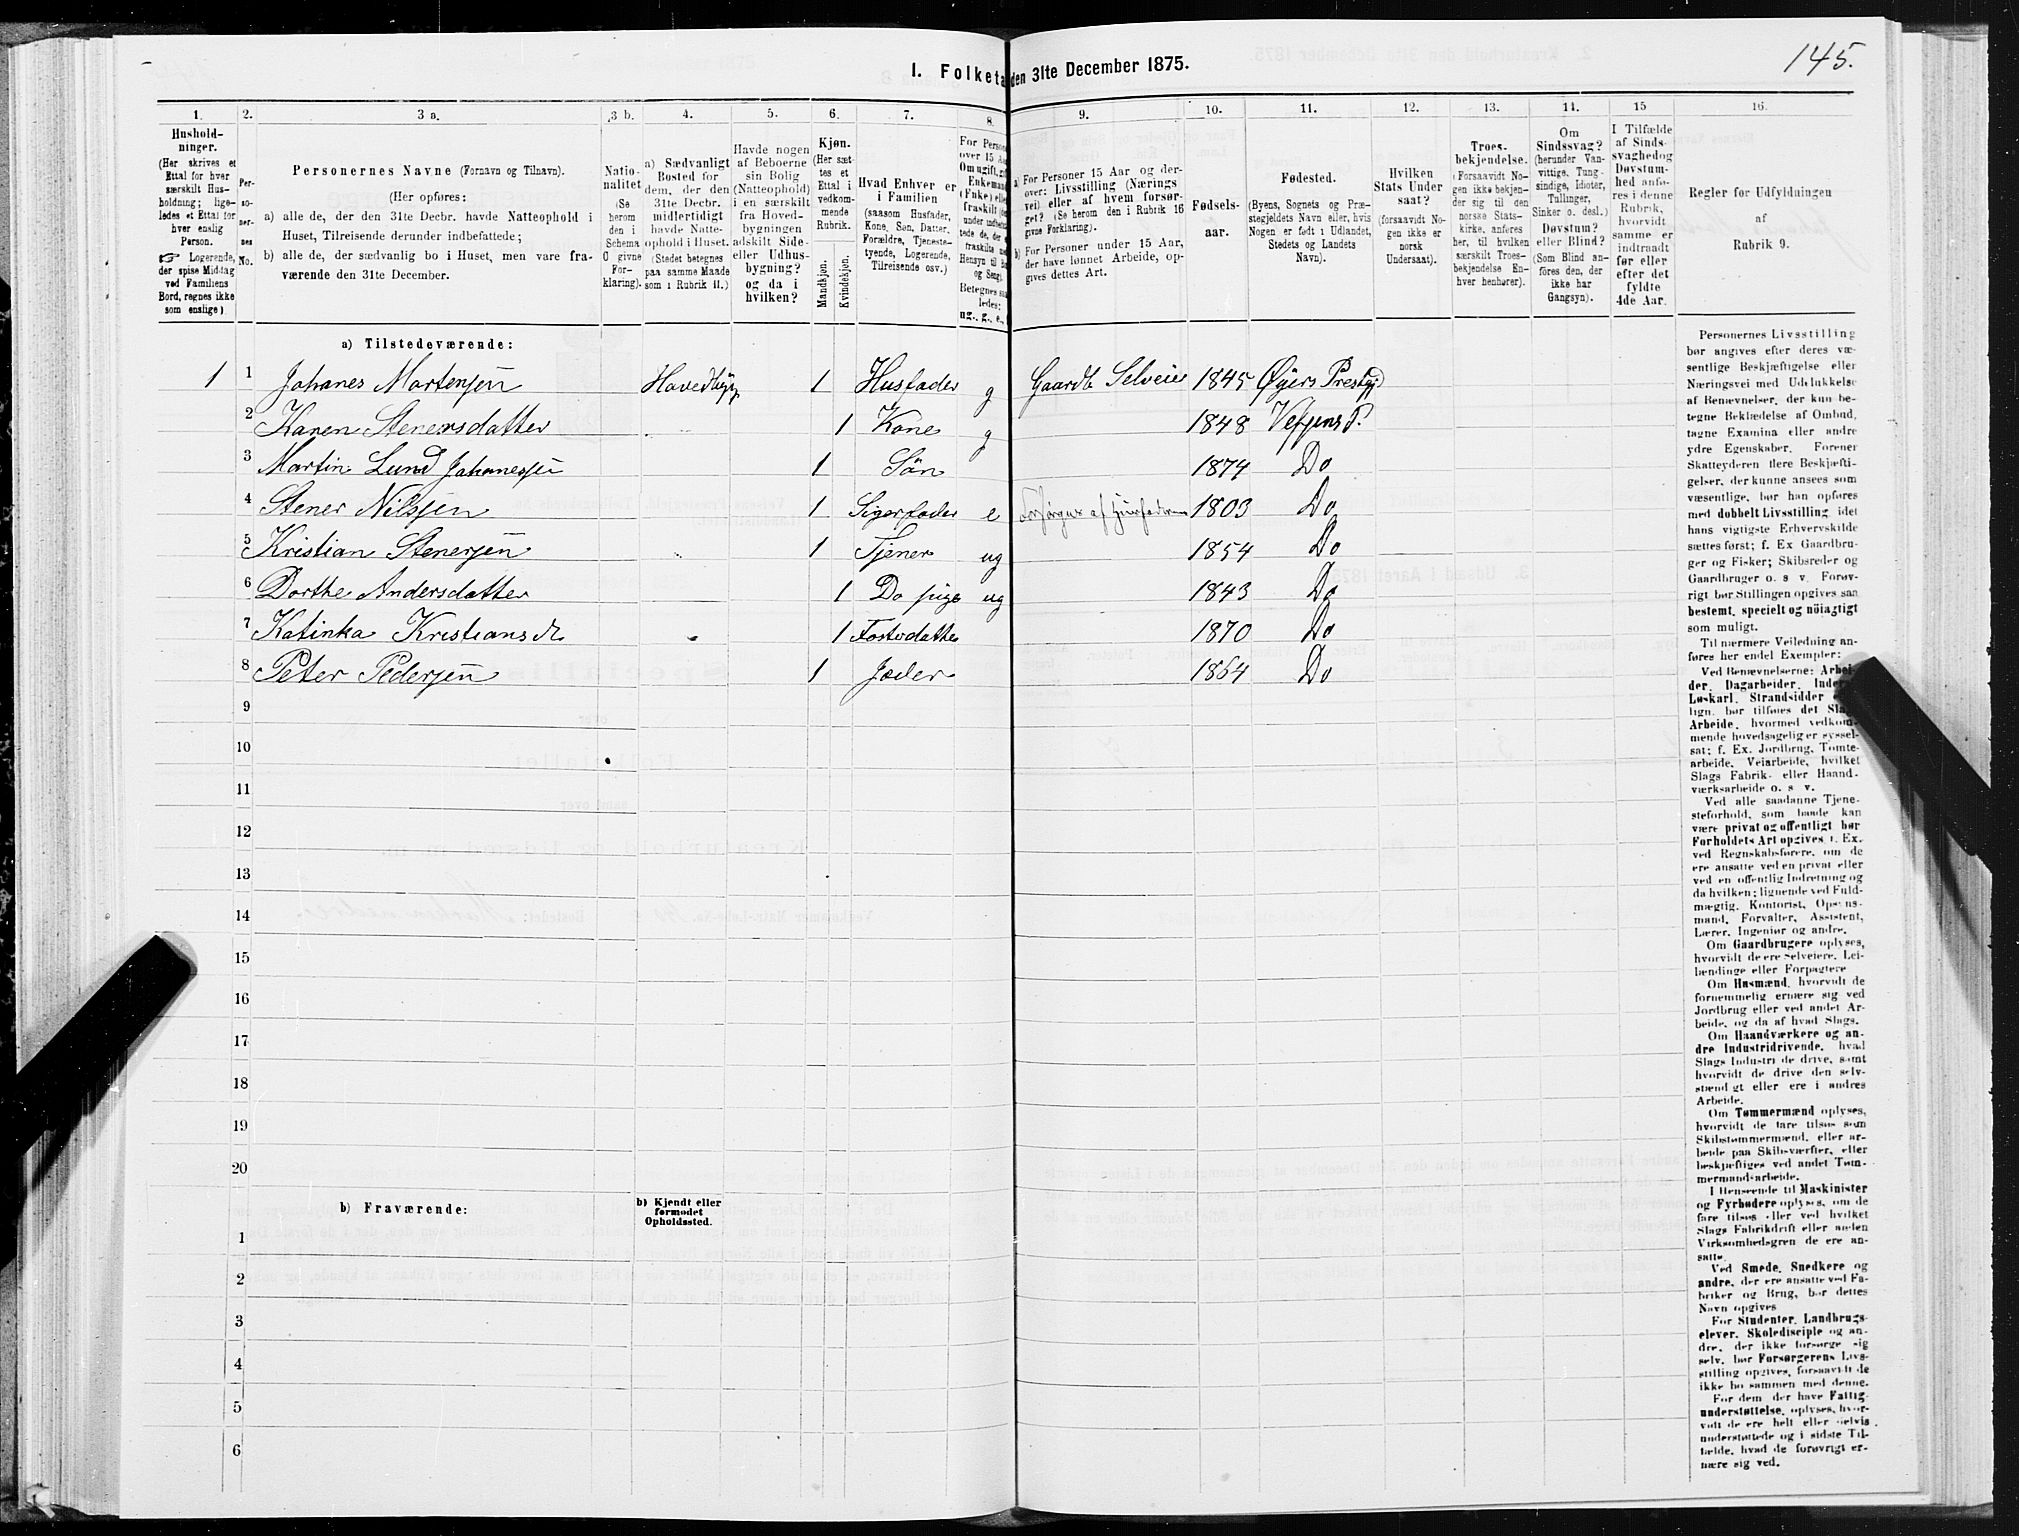 145.
I. Folketa den 31te December 1875.
1. 2. 3 a. 3 b. 4. 5. 6. 7. 8. 9. 10. 11. 12. 13. 14. 15 16.
Hushold-
ninger.
(Her skrives et
Ettal for hver
særskilt Hus-
holdning; lige-
ledes et Ettal for
hver enslig
Person.
Logerende,
der spise Middag
ved Familiens
Bord, regnes ikke
som enslige)
Per-
so-
ner-
nes
No.
Personernes Navne (Fornavn og Tilnavn).
(Her opføres:
a) alle de, der den 31te Decbr. havde Natteophold i
Huset, Tilreisende derunder indbefattede;
b) alle de, der sædvanlig bo i Huset, men vare fra-
værende den 31te December.
Natio-
nalitet
(Se
herom
den i
Schema
O givne
For-
klaring).
a) Sædvanligt
Bosted for
dem, der den
31te Decbr.
midlertidigt
havde Natte-
ophold i Huset.
(Stedet betegnes
paa samme Maade
som i Rubrik 11.)
Havde nogen
af Beboerne
sin Bolig
(Natteophold)
i en særskilt
fra Hoved-
bygningen
adskilt Side-
eller Udhus-
bygning?
og da i
hvilken?
Kjøn.
(Her sæt-
tes et
Ettal i
vedkom-
mende
Rubrik.
Mandkjøn.
Kvindekjøn.
Hvad Enhver er
i Familien
(saasom Husfader,
Kone, Søn, Datter,
Forældre, Tjeneste-
tyende, Logerende,
Tilreisende osv.)
For Person
over 15 Aa
Omugift, gi
Enkeman
(Fnke) elle
fraskilt
Betegnes saa
ledes:
ug., g., e.,
a) For Personer 15 Aar og der-
over: Livsstilling (Nærings
vei) eller af hvem forsør-
get? (Se herom den i Rubrik 16
givne Forklaring).
b) For Personer under 15 Aar,
der have lønnet Arbeide, op-
gives dettes Art.
Fødsels-
aar.
Fødested.
(Byens, Sognets og Præ-
stegjeldets Navn eller, hvis
Nogen er født i Udlandet,
Stedets og Landets
Navn).
Hvilken
Stats Under
saat?
(forsaavidt No-
gen ikke er
norsk
Undersaat).
Troes-
bekjendelse.
(Forsaavidt No-
gen ikke bekjen-
der sig til den
norske Stats-
kirke, anføres
her, til hvilken
særskilt Troes-
bekjendelse En-
hver henhører).
Om
Sindssvag?
(herunder Van-
vittige, Tung-
sindige, Idioter,
Tullinger,
Sinker o. desl.)
Døvstum?
eller Blind?
(Som Blind an-
føres den, der
ikke har
Gangsyn).
I Tilfælde
af Sinds-
svaghedog
Døvstum-
hed anfø-
res i denne
Rubrik,
hvorvidt
samme er
indtraadt
før eller
efter det
fyldte
4de Aar.
Regler for Udfyldningen
af
Rubrik 9.
a) Tilstedeværende:
1 1 Johanes Mortensen Hovedbyg 1 Husfader g Gaardb Selveier 1845 Øyers Prestgj
2 Karen Stenersdatter 1 Kone g 1848 Vefsens P.
3 Martin Lund Johanesen 1 Søn 1874 Do
4 Stener Nilssen 1 e Forsørges af Husfaderen 1803 Do
5 Kristian Stenersen 1 Tjener ug 1854 Do
6 Dorthe Andersdatter 1 Do pige ug 1843 Do
7 Katinka Kristiansdr 1 Fosterdatter 1870 Do
8 Peter Pedersen 1 1864 Do
9
10
11
12
13
14
15
16
17
18
19
20
b) Fraværende:
b) Kjendt eller
formodet
Opholdssted.
1
2
3
4
5
6
Personernes Livsstilling
bør angives efter deres væ-
sentlige Beskjæftigelse eller
Næringsvei med Udelukkelse
af Benævnelser, der kun be-
tegne Beklædelse af Ombud,
tagne Examina eller andre
ydre Egenskaber. Forener
Skatteyderen flere Beskjæfti-
gelser, der kunne ansees som
væsentlige, bør han opføres
med dobbelt Livsstilling, idet
hans vigtigste Erhvervskilde
sættes først; f. Ex Gaardbru-
ger og Fisker; Skibsreder og
Gaardbruger o. s v. Forøv-
rigt bør Stillingen opgives saa
bestemt, specielt og nöiagtigt
som muligt.
Til nærmere Veiledning an-
føres her endel Exempler:
Ved Benævnelserne: Arbei-
der, Dagarbeider, Inderst,
Løskarl, Strandsidder
lign. bør tilføies det Slags
Arbeide, hvormed vedkom-
mende hovedsagelig er syssel-
sat; f. Ex. Jordbrug, Tomte-
arbeide, Veiarbeide, hvilket
Slags Fabrik- eller Haand-
værksarbeide o. s v.
Ved alle saadanne Tjene-
steforhold, som baade kan
være privat og offentligt bør
Forholdets Art opgives, f. Ex.
ved Regnskabsførere, om de
ere ansatte ved en privat eller
ved en offentlig Indretning og
da hvilken; lignende ved Fuld-
mægtig, Kontorist, Opsyns-
mand, Forvalter, Assistent,
Lærer, Ingeniør og andre.
Om Gaardbrugere oplyses,
hvorvidt de ere Selveiere, Lei-
lændinge eller Forpagtere
Om Husmænd, hvorvidt de
fornemmelig ernære sig ved
Jordbrug eller ved andet Ar-
beide, og da af hvad Slags.
Om Haandværkere og an-
dre Industridrivende, hvad
Slags Industri de drive, samt
hvorvidt de drive den selv-
stændigt eller ere i andres
Arbeide.
Om Tømmermænd oplyses,
hvorvidt de fare tilsøs som
Skibstømmermænd, eller ar-
beide paa Skibsværfter, eller
beskjæftiges ved andet Tøm-
mermandsarbeide.
I Henseende til Maskinister
og Fyrbødere oplyses, om de
fare tilsøs eller ved hvilket
Slags Fabrikdrift eller anden
Virksomhedsgren de ere an-
satte.
Ved Smede, Snedkere og
andre, der ere ansatte ved Fa-
briker og Brug, bør dettes
Navn opgives
For Studenter, Landbrugs-
elever, Skoledisciple og an-
dre, der ikke forsørge sig
selv, bør Forsørgerens Livs-
stilling opgives, forsaavidt de
ikke bo sammen med denne.
For dem, der have Fattig-
understøttelse, oplyses, hvor-
vidt de ere helt eller delvis
understøttede og i sidste Til-
fælde, hvad de forøvrigt er-
nære sig ved.